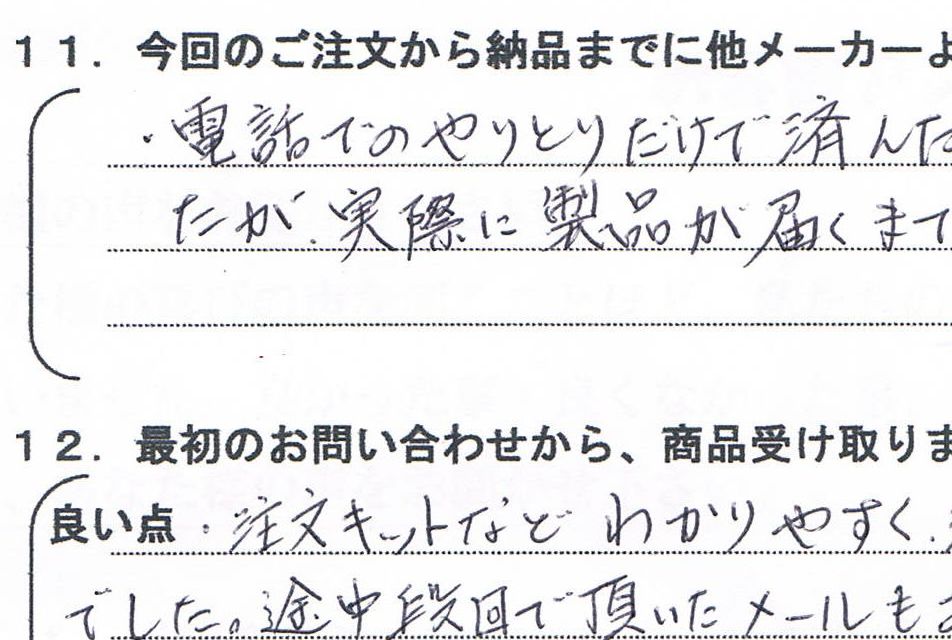 １１．今回のご注文から納品までに他メーカーよ
・電話でのやりとりだけで済んだ
たが、実際に製品が届くまで
１２．最初のお問い合わせから、商品受け取りま
良い点・注文キットなど わかりやすく、
でした。途中段回で頂いたメールも